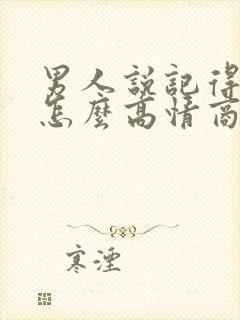 男人説記得
怎麼高情商
寒湮